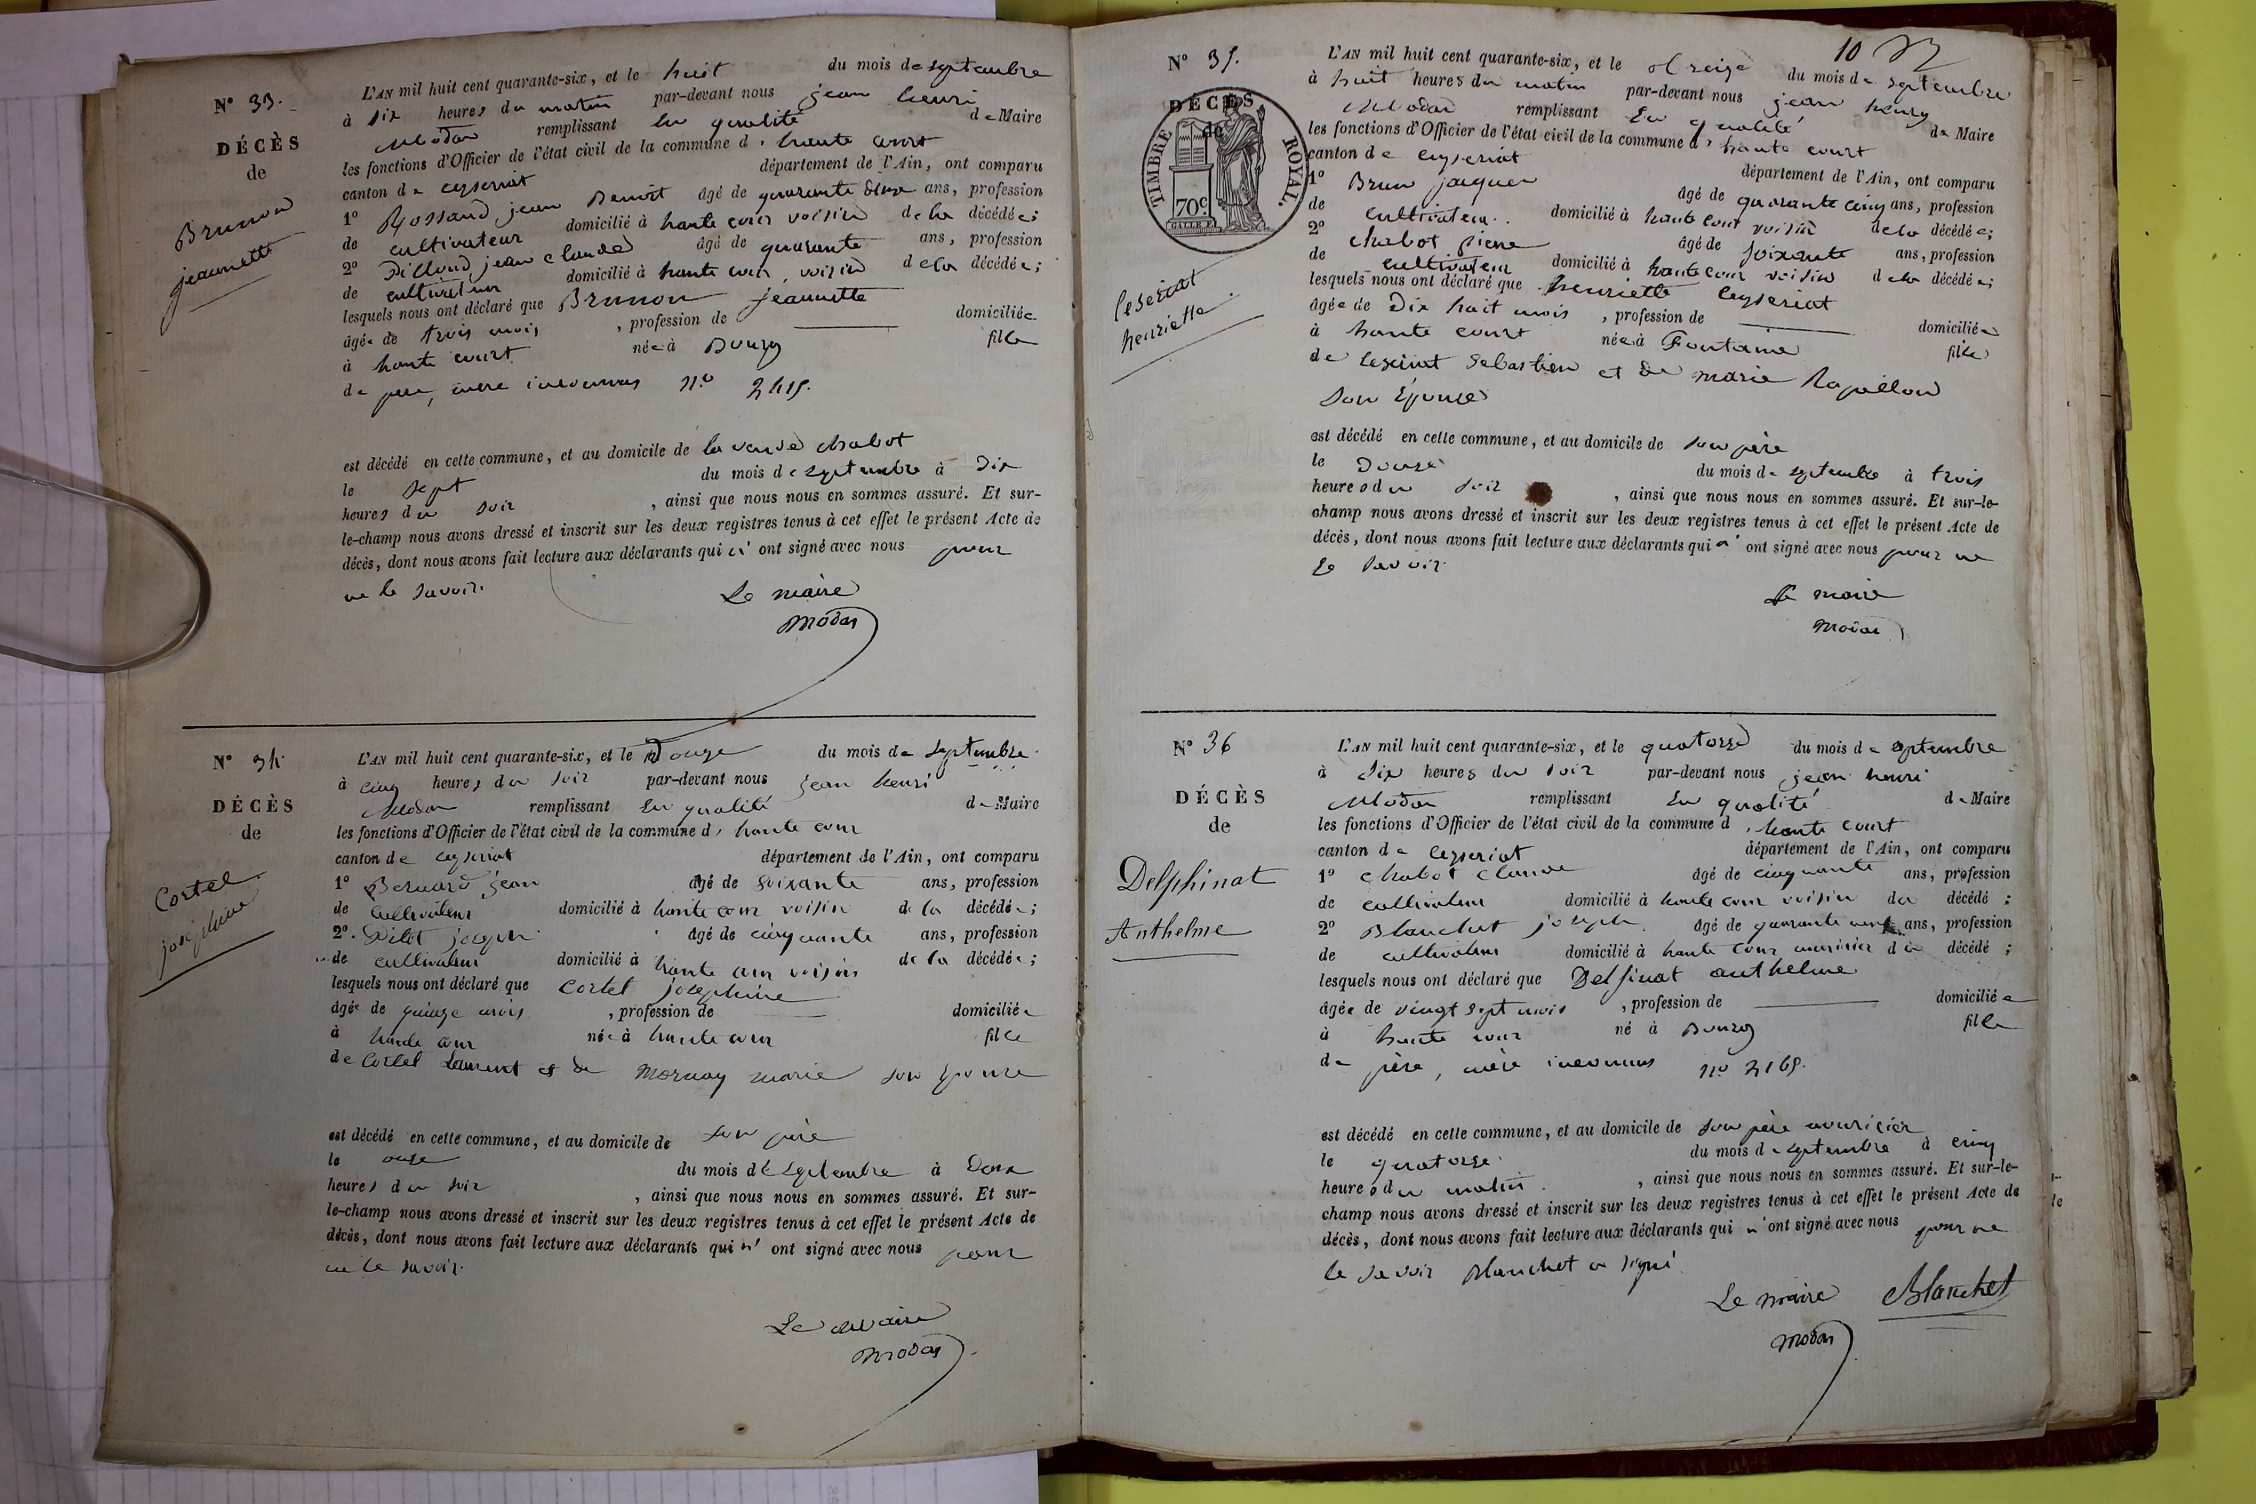 N° 33.
DÉCÈS
de
Brunon
jeannette
L'AN mil huit cent quarante-six, et le huit du mois de septembre
à dix heures du matin par-devant nous jean henri
Modas remplissant en qualité de Maire
les fonctions d'Officier de l'état civil de la commune d' haute court
canton de ceyseriat département de l'Ain, ont comparu
1° Rossand jean Benoit âgé de quarante deux ans, profession
de cultivateur domicilié à haute cour voisin de la décédée;
2° jean claude âgé de quarante ans, profession
de cultivateur domicilié à haute cour voisin de la décédée;
lesquels nous ont déclaré que Brunon jeannette
âgée de trois mois, profession de domiciliée
à haute court née à Bourg fille
de père, mère inconnus n° 2415.
est décédé en cette commune, et au domicile de la veuve chabot
le sept du mois de septembre à dix
heures du soir, ainsi que nous nous en sommes assuré. Et sur-
le-champ nous avons dressé et inscrit sur les deux registres tenus à cet effet le présent Acte de
décès, dont nous avons fait lecture aux déclarants qui n' ont signé avec nous pour
ne le savoir.
Le maire
Modas
N° 34
DÉCÈS
de
Cortel
joséphine
L'AN mil huit cent quarante-six, et le douze du mois de septembre
à cinq heures du soir par-devant nous jean henri
Modas remplissant en qualité de Maire
les fonctions d'Officier de l'état civil de la commune d' haute cour
canton de ceyseriat département de l'Ain, ont comparu
1° Bernard jean âgé de soixante ans, profession
de cultivateur domicilié à haute cour voisin de la décédée;
2° Pilet âgé de cinquante ans, profession
de cultivateur domicilié à haute cour voisin de la décédée;
lesquels nous ont déclaré que Cortel josephine
âgée de quinze mois, profession de domiciliée
à haute cour née à haute cour fille
de Cortel Laurent et de Mornay marie son épouse
est décédé en cette commune, et au domicile de son père
le onze du mois de septembre à deux
heures du soir, ainsi que nous nous en sommes assuré. Et sur-
le-champ nous avons dressé et inscrit sur les deux registres tenus à cet effet le présent Acte de
décès, dont nous avons fait lecture aux déclarants qui n' ont signé avec nous pour
ne le savoir.
Le maire
Modas
10
N° 35.
DÉCÈS
de
TIMBRE ROYAL.
70c.
Ceseriat
henriette
L'AN mil huit cent quarante-six, et le treize du mois de septembre
à huit heures du matin par-devant nous jean henry
Modas remplissant en qualité de Maire
les fonctions d'Officier de l'état civil de la commune d' haute court
canton de ceyseriat département de l'Ain, ont comparu
1° Brun jacques âgé de quarante cinq ans, profession
de cultivateur. domicilié à haute cour voisin de la décédée;
2° chabot pierre âgé de soixante ans, profession
de cultivateur domicilié à haute cour voisin de la décédée;
lesquels nous ont déclaré que henriette Ceyseriat
âgée de dix huit mois, profession de domiciliée
à haute court née à Fontaine fille
de Ceseriat Sebastien et de marie
son épouse
est décédé en cette commune, et au domicile de son père
le douze du mois de septembre à trois
heures du soir, ainsi que nous nous en sommes assuré. Et sur-le-
champ nous avons dressé et inscrit sur les deux registres tenus à cet effet le présent Acte de
décès, dont nous avons fait lecture aux déclarants qui n' ont signé avec nous pour ne
le savoir.
Le maire
Modas
N° 36
DÉCÈS
de
Delphinat
Anthelme
L'AN mil huit cent quarante-six, et le quatorze du mois de septembre
à six heures du soir par-devant nous jean henri
Modas remplissant en qualité de Maire
les fonctions d'Officier de l'état civil de la commune d' haute court
canton de ceyseriat département de l'Ain, ont comparu
1° chabot claude âgé de cinquante ans, profession
de cultivateur domicilié à haute cour voisin du décédé;
2° Blanchet joseph âgé de quarante neuf ans, profession
de cultivateur domicilié à haute cour nouricier du décédé;
lesquels nous ont déclaré que Delfinat anthelme
âgée de vingt sept mois, profession de domiciliée
à haute cour né à Bourg fille
de père, mère inconnus n° 2165.
est décédé en cette commune, et au domicile de son père nouricier
le quatorze. du mois de septembre à cinq
heures du matin, ainsi que nous nous en sommes assuré. Et sur-le-
champ nous avons dressé et inscrit sur les deux registres tenus à cet effet le présent Acte de
décès, dont nous avons fait lecture aux déclarants qui n' ont signé avec nous pour ne
le savoir Blanchet a signé
Le maire Blanchet
Modas